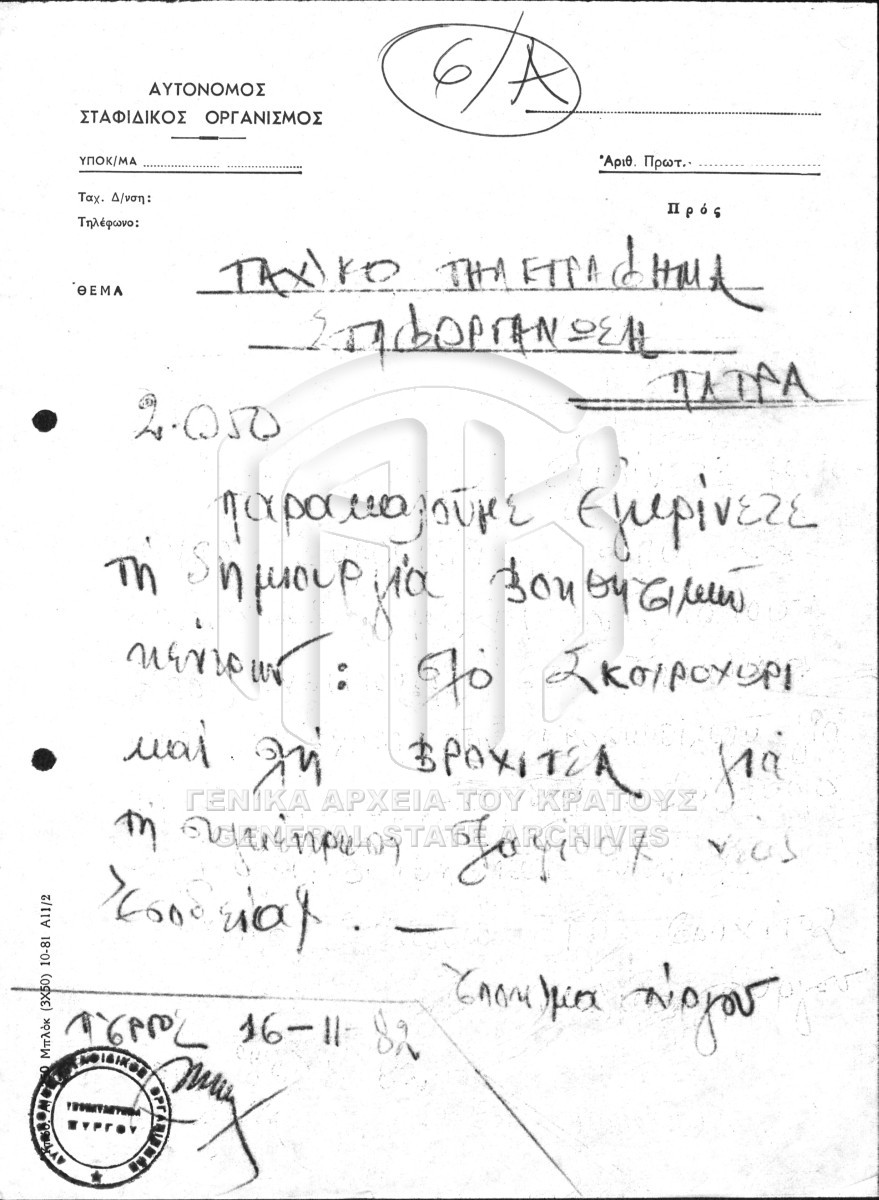 6/Α
ΑΥΤΟΝΟΜΟΣ
ΣΤΑΦΙΔΙΚΟΣ ΟΡΓΑΝΙΣΜΟΣ
ΥΠΟΚ/ΜΑ
Ἀριθ. Πρωτ.
Ταχ. Δ/νση:
Τηλέφωνο:
Πρός
ΘΕΜΑ
ΤΑΧ)ΚΟ ΤΗΛΕΓΡΑΦΗΜΑ
ΣΤΑΦΟΡΓΑΝΩΣΗ
ΠΑΤΡΑ
2.050
παρακαλοῦμε ἐγκρίνετε
τή δημιουργία βοηθητικῶν
κέντρων: στό ΣΚΟΥΡΟΧΩΡΙ
καί στή ΒΡΟΧΙΤΣΑ γιά
τή συγκέντρωση σταφίδας νέας
ἐσοδείας. —
Ὑποκ)μα Πύργου
ΠΥΡΓΟΣ 16-11-82
ΓΕΝΙΚΑ ΑΡΧΕΙΑ ΤΟΥ ΚΡΑΤΟΥΣ
GENERAL STATE ARCHIVES
Μπλόκ (3Χ50) 10-81 Α11/2
ΑΥΤΟΝΟΜΟΣ ΣΤΑΦΙΔΙΚΟΣ ΟΡΓΑΝΙΣΜΟΣ
ΥΠΟΚΑΤΑΣΤΗΜΑ
ΠΥΡΓΟΥ